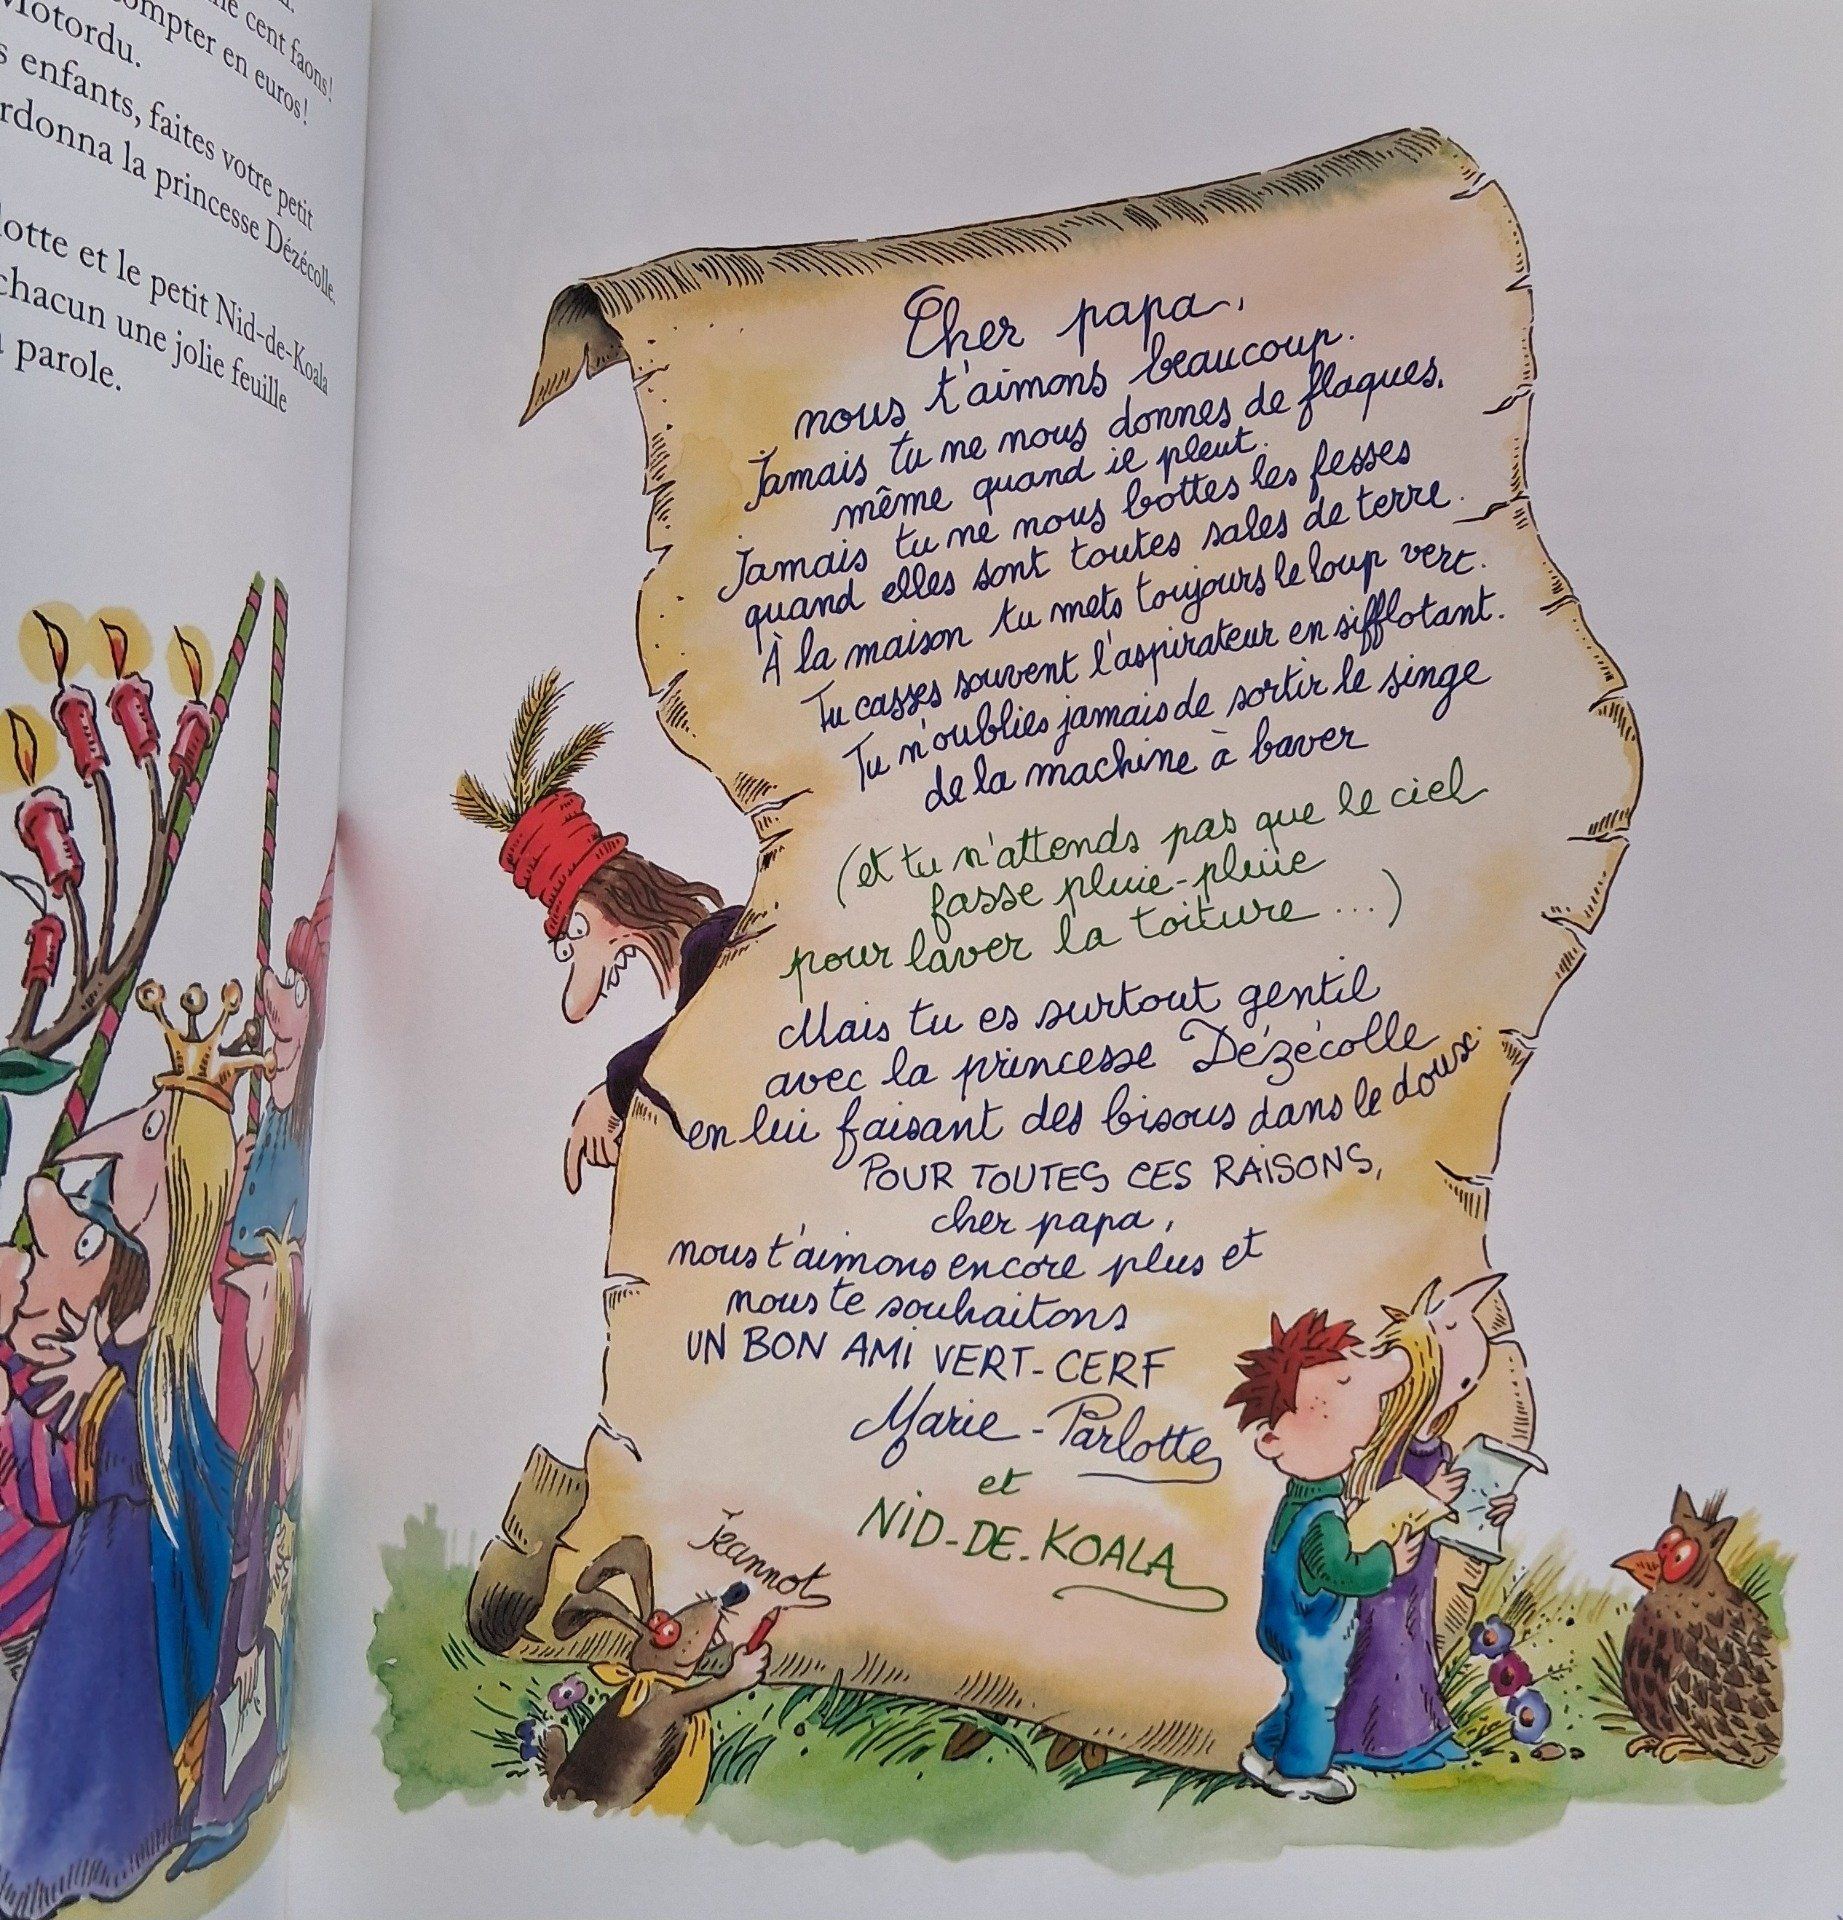 cent faons!
compter en euros!
Motordu.
enfants, faites votre petit
rdonna la princesse Dézécolle.
lotte et le petit Nid-de-Koala
chacun une jolie feuille
parole.
Cher papa,
nous t'aimons beaucoup.
Jamais tu ne nous donnes de flaques,
même quand il pleut.
Jamais tu ne nous bottes les fesses
quand elles sont toutes sales de terre.
À la maison tu mets toujours le loup vert.
Tu casses souvent l'aspirateur en sifflotant.
Tu n'oublies jamais de sortir le singe
de la machine à baver
(et tu n'attends pas que le ciel
fasse pluie-pluie
pour laver la toiture...)
Mais tu es surtout gentil
avec la princesse Dézécolle
en lui faisant des bisous dans le doux.
POUR TOUTES CES RAISONS,
cher papa,
nous t'aimons encore plus et
nous te souhaitons
UN BON AMI VERT-CERF
Marie-Parlotte
et
NID-DE-KOALA
Jeannot